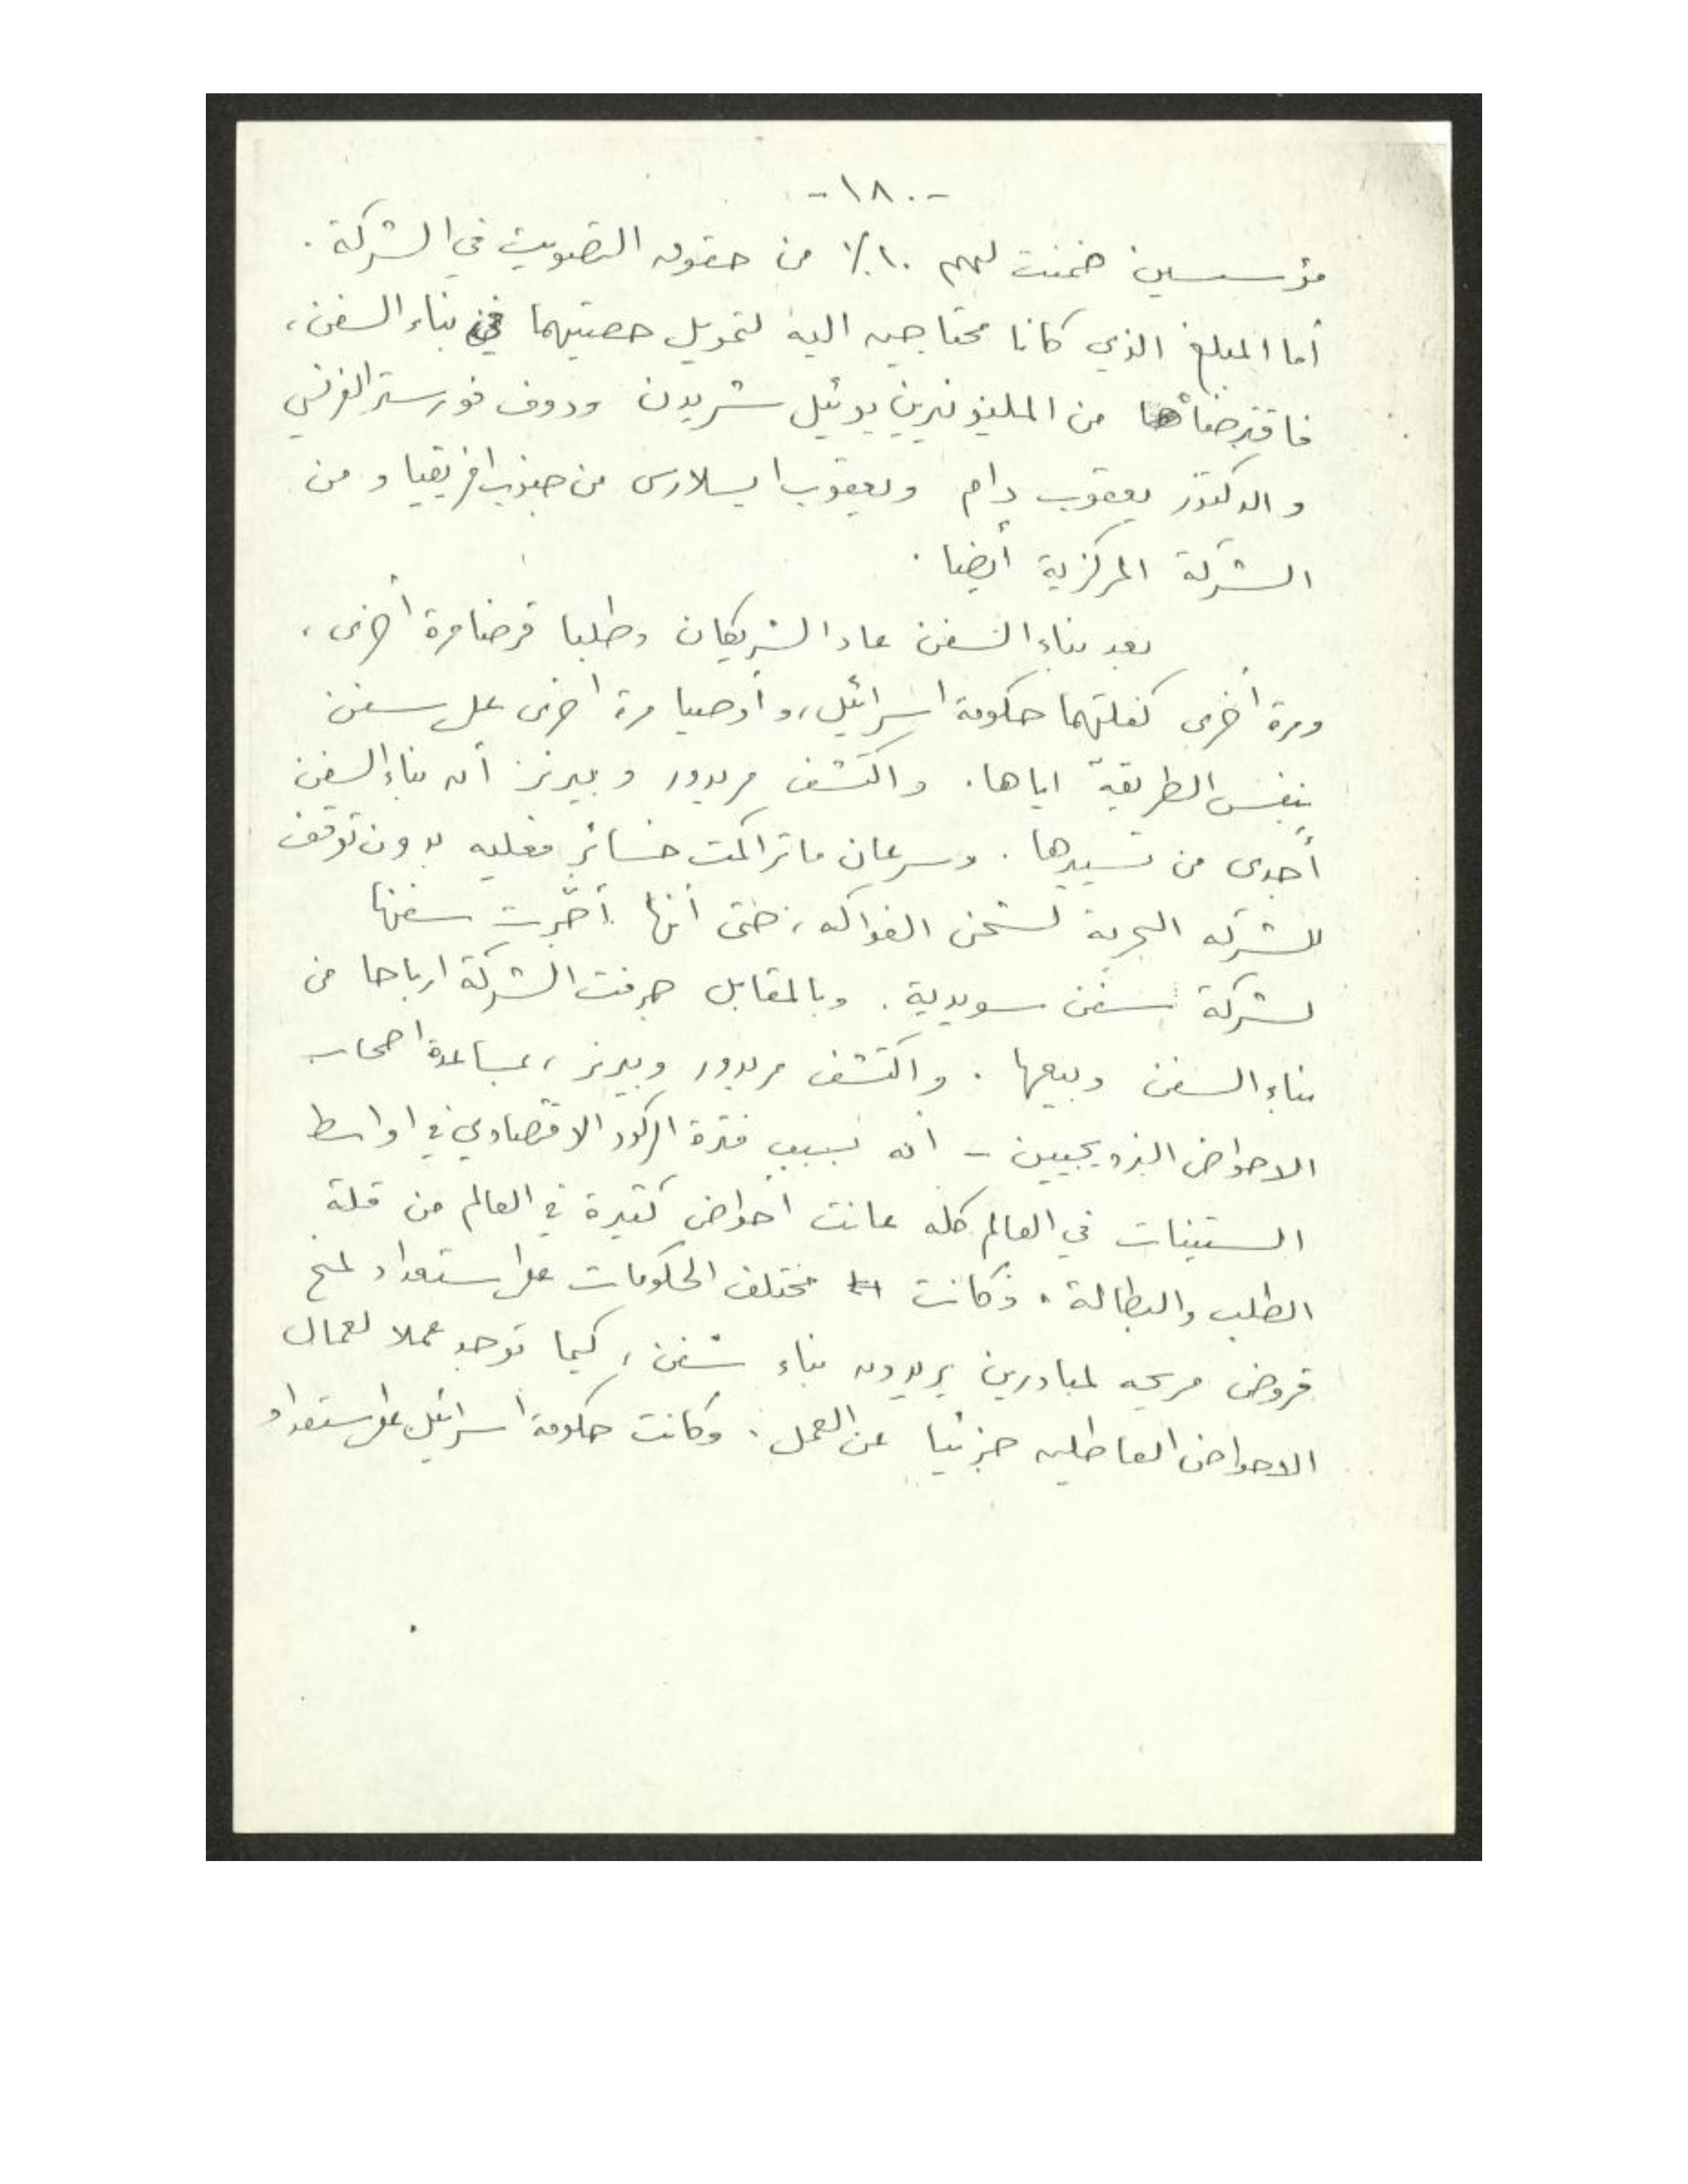 -١٨٠-
مؤسسين ضمنت لهم ١٠٪ من حقوق التصويت في الشركة .
أما المبلغ الذي كانا محتاجين اليه لتمويل حصتيهما في بناء السفن ،
فاقترضاها من المليونيرين يوئيل شريدن ودوف فورستر الفرنسي
والدكتور يعقوب دام ويعقوب ايسلارس من جنوب افريقيا ومن
الشركة المركزية أيضا .
بعد بناء السفن عاد الشريكان وطلبا قرضا مرة أخرى ،
ومرة أخرى كفلتهما حكومة اسرائيل ، وأوصيا مرة اخرى على سفن
بنفس الطريقة اياها . واكتشف مريدور وبيرنز أن بناء السفن
أجدى من تسييرها . وسرعان ما تراكمت خسائر فعليه بدون توقف
للشركه البحرية لشحن الفواكه ، حتى أنها أجّرت سفنها
لشركة سفن سويدية . وبالمقابل جرفت الشركة ارباحا من
بناء السفن وبيعها . واكتشف مريدور وبيرنز ، بمساعدة اصحاب
الاحواض النرويجيين - انه بسبب فترة الركود الاقتصادي في اواسط
الستينات في العالم كله عانت احواض كثيرة في العالم من قلة
الطلب والبطالة . وكانت مختلف الحكومات على استعداد لمنح
قروض مريحه لمبادرين يريدون بناء سفن ، كيما توجد عملا لعمال
الاحواض العاطلين جزئيا عن العمل . وكانت حكومة اسرائيل على استعداد